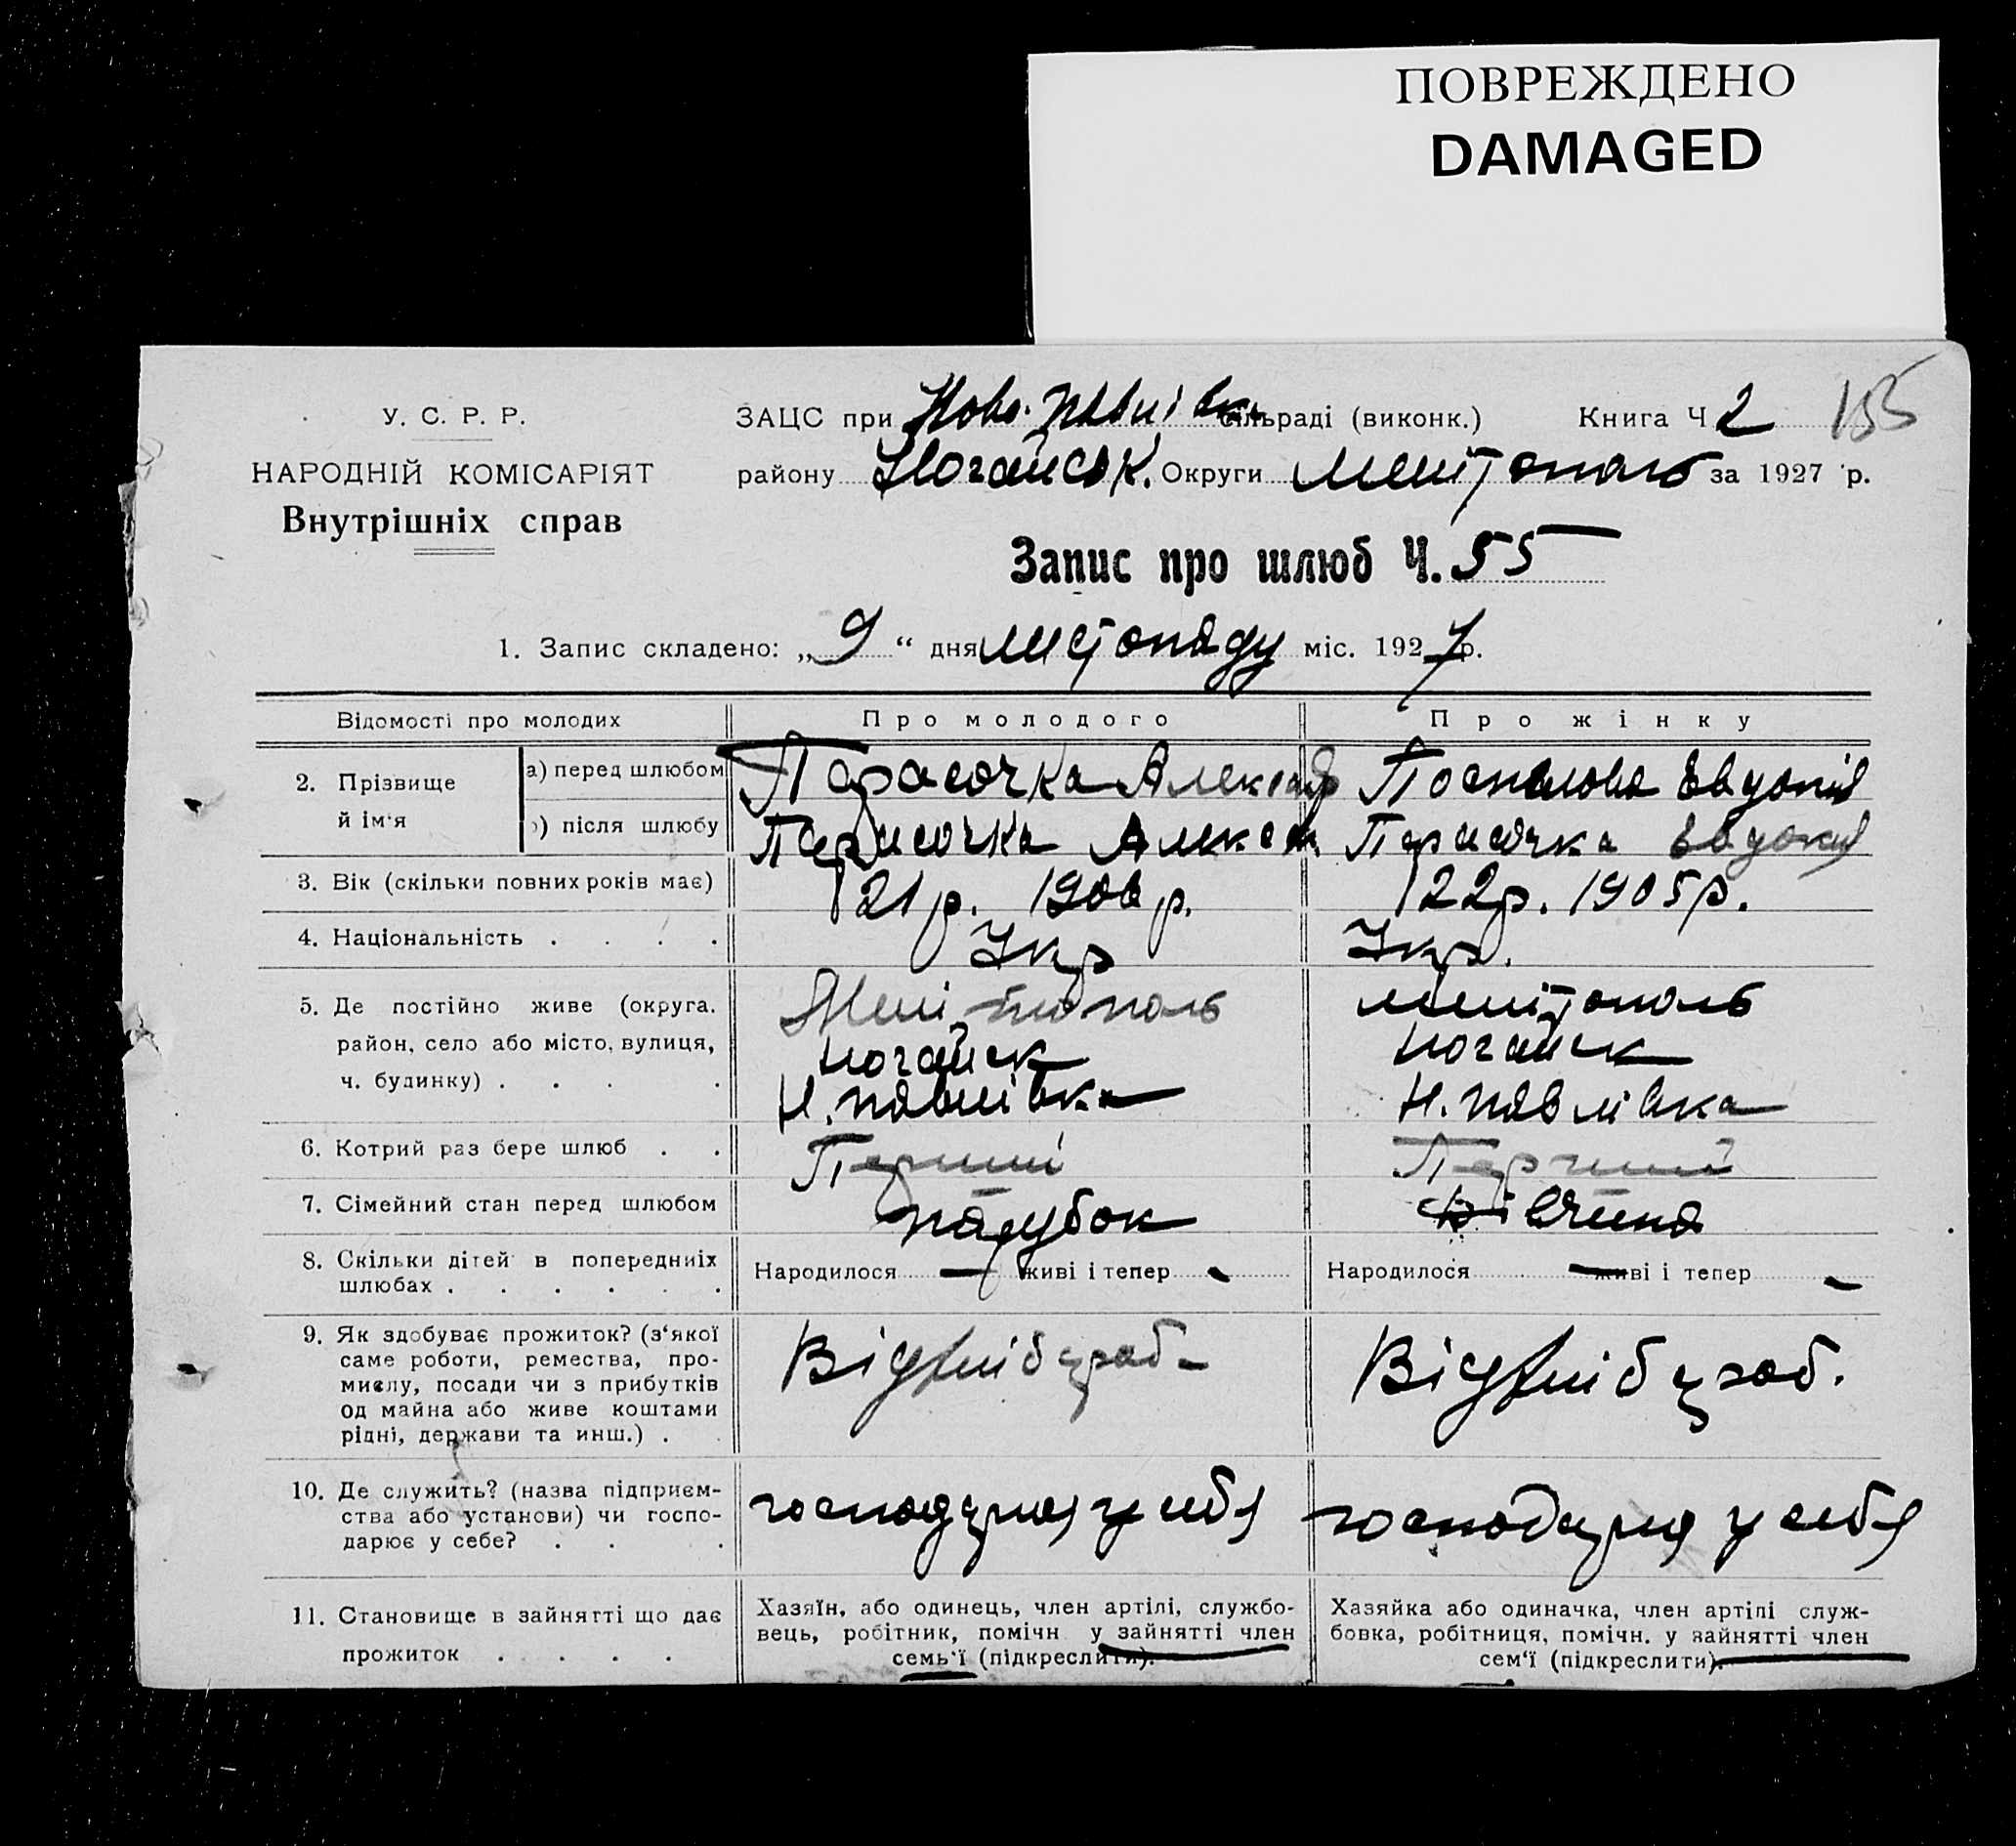 ПОВРЕЖДЕНО
DAMAGED
У. С. Р. Р.
НАРОДНІЙ КОМІСАРІЯТ
Внутрішніх справ
ЗАЦС при Ново-Павлівка сільраді (виконк.) Книга Ч 2 155
району Ногайськ. Округи Мелітополь за 1927 р.
Запис про шлюб Ч. 55
1. Запис складено: „ 9 “ дня листопаду міс. 1927 р.
Відомості про молодих Про молодого Про жінку
2. Прізвище й ім'я
а) перед шлюбом Парасочка Александр Поспилова Евдокія
б) після шлюбу Парасочка Парасочка Евдокия
3. Вік (скільки повних років має) 21 р. 1906 р. 22 р. 1905 р.
4. Національність . . . . Укр Укр.
5. Де постійно живе (округа. Мелітополь Мелітополь
район, село або місто, вулиця, Ногайск Ногайск
ч. будинку) . . . . Н. Павлівка Н. Павлівка
6. Котрий раз бере шлюб . . Перший Перший
7. Сімейний стан перед шлюбом парубок дівчина
8. Скільки дітей в попередніх Народилося — живі і тепер - Народилося — живі і тепер -
шлюбах . . . . . .
9. Як здобуває прожиток? (з'якої
саме роботи, ремества, про- Від хлібораб- Від хлібораб.
мислу, посади чи з прибутків
од майна або живе коштами
рідні, держави та инш.) .
10. Де служить? (назва підприєм-
ства або установи) чи госпо- у себя у себя
дарює у себе? . . .
11. Становище в зайнятті що дає
прожиток . . . .
Хазяїн, або одинець, член артілі, службо-
вець, робітник, помічн у зайнятті член
семь'ї (підкреслити).
Хазяйка або одиначка, член артілі служ-
бовка, робітниця, помічн. у зайнятті член
сем'ї (підкреслити).